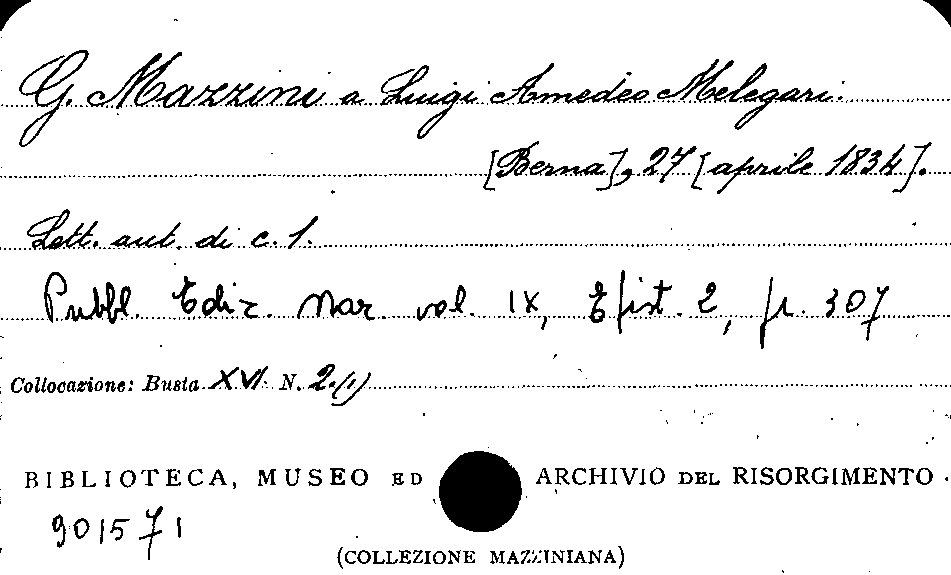 G. Mazzini a Luigi Amedeo Melegari.
[Berna], 27 [aprile 1834].
Lett. aut. di c. 1.
Pubbl. Ediz. Naz. vol. IX, Epist. 2, p. 307
Collocazione: Busta XVI N. 2.(1)
BIBLIOTECA, MUSEO ED ARCHIVIO DEL RISORGIMENTO
901571
(COLLEZIONE MAZZINIANA)